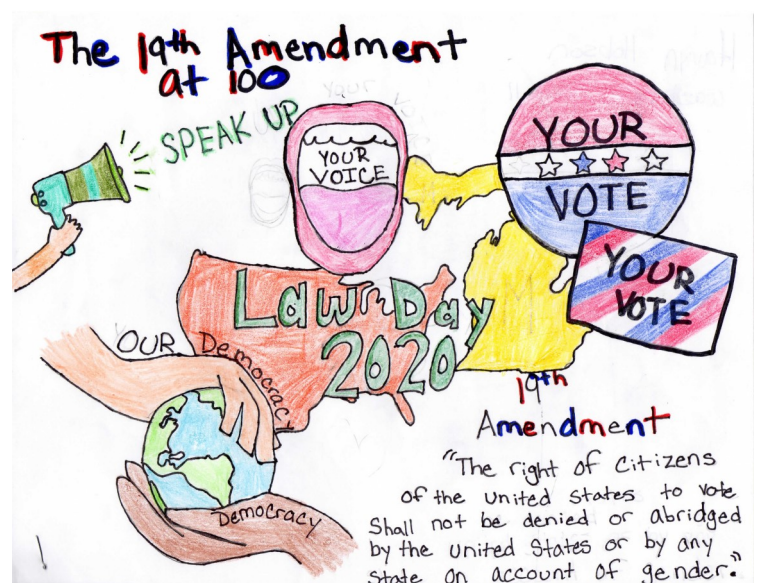 The 19th Amendment
at 100
SPEAK UP
YOUR
VOICE
YOUR
VOTE
YOUR
VOTE
Law Day
2020
OUR Democracy
Democracy
19th
Amendment
"The right of Citizens
of the United States to vote
Shall not be denied or abridged
by the United States or by any
State on account of gender."